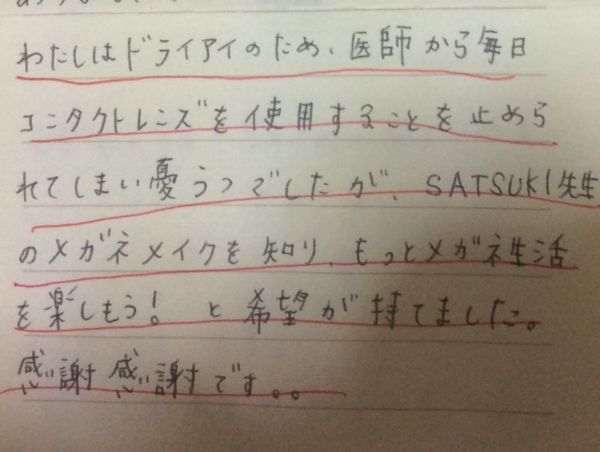 わたしはドライアイのため、医師から毎日
コンタクトレンズを使用することを止めら
れてしまい憂うつでしたが、SATSUKI先生
のメガネメイクを知り、もっとメガネ生活
を楽しもう! と希望が持てました。
感謝感謝です。。